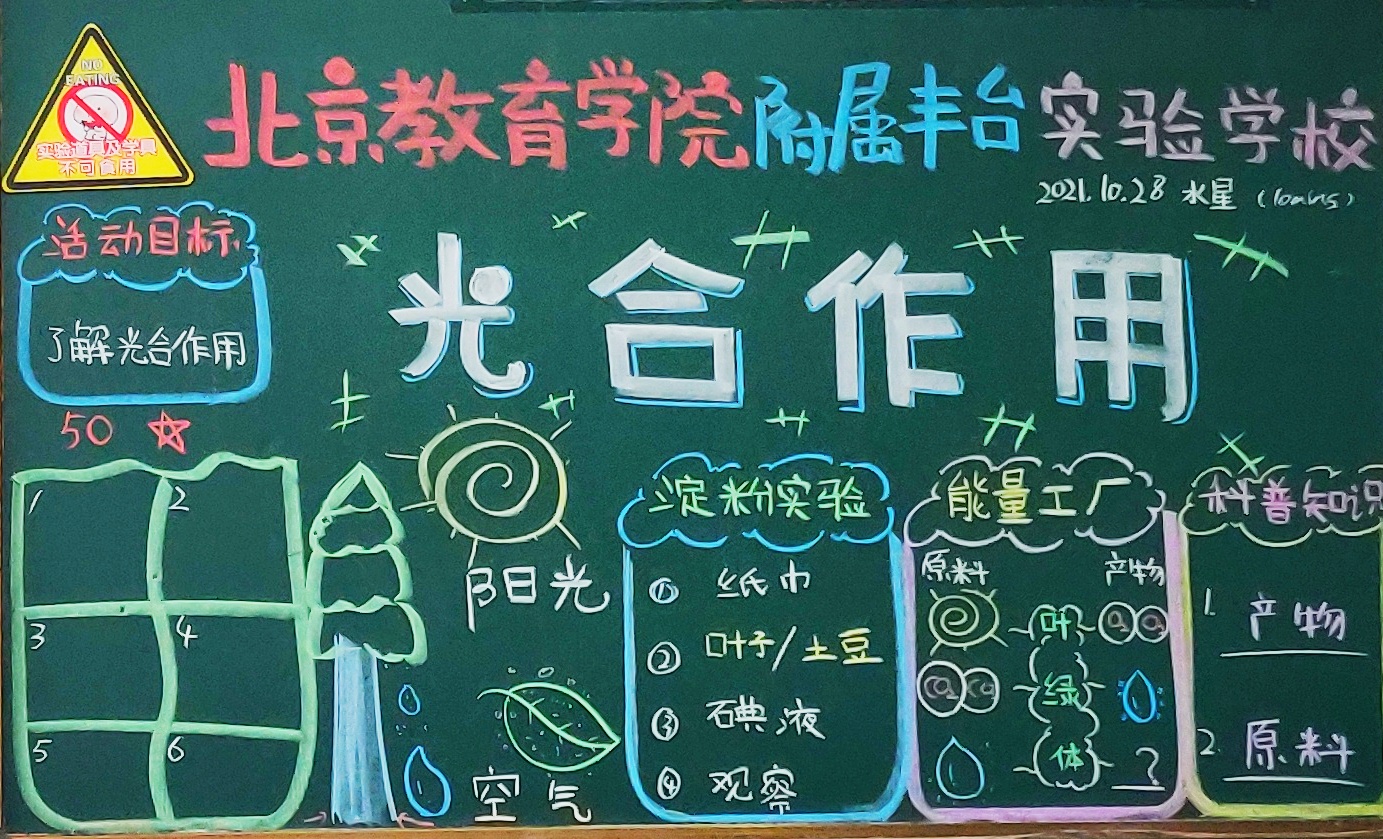 NO
EATING
实验道具及学具
不可食用
北京教育学院附属丰台实验学校
2021.10.28 水星
活动目标
了解光合作用
光合作用
50
1
2
3
4
5
6
阳光
空气
淀粉实验
① 纸巾
② 叶子/土豆
③ 碘液
④ 观察
能量工厂
原料 产物
叶 O₂ O₂
CO₂
绿
体
?
科普知识
1. 产物
2. 原料